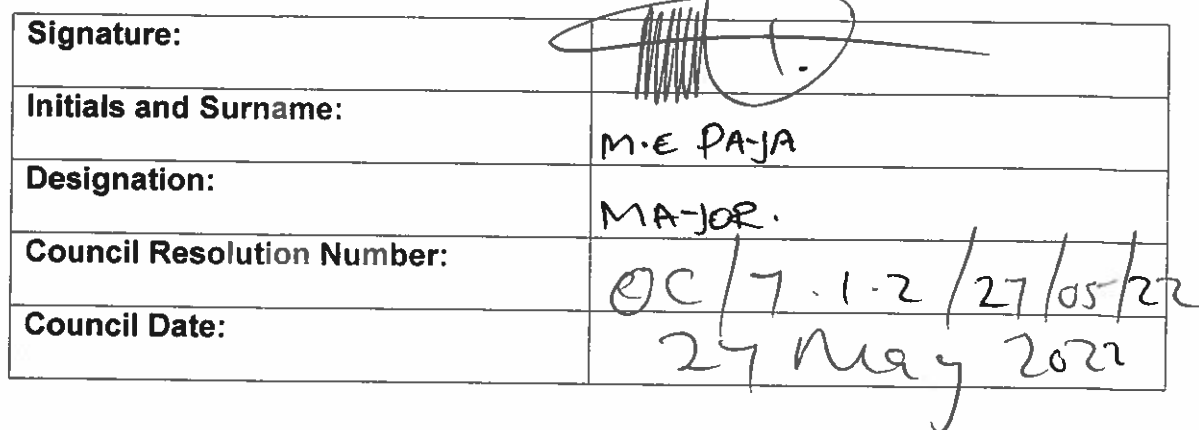 Signature:
Initials and Surname: M.E PAJA
Designation: MAJOR.
Council Resolution Number: OC/7.1.2/27/05/22
Council Date: 27 May 2022